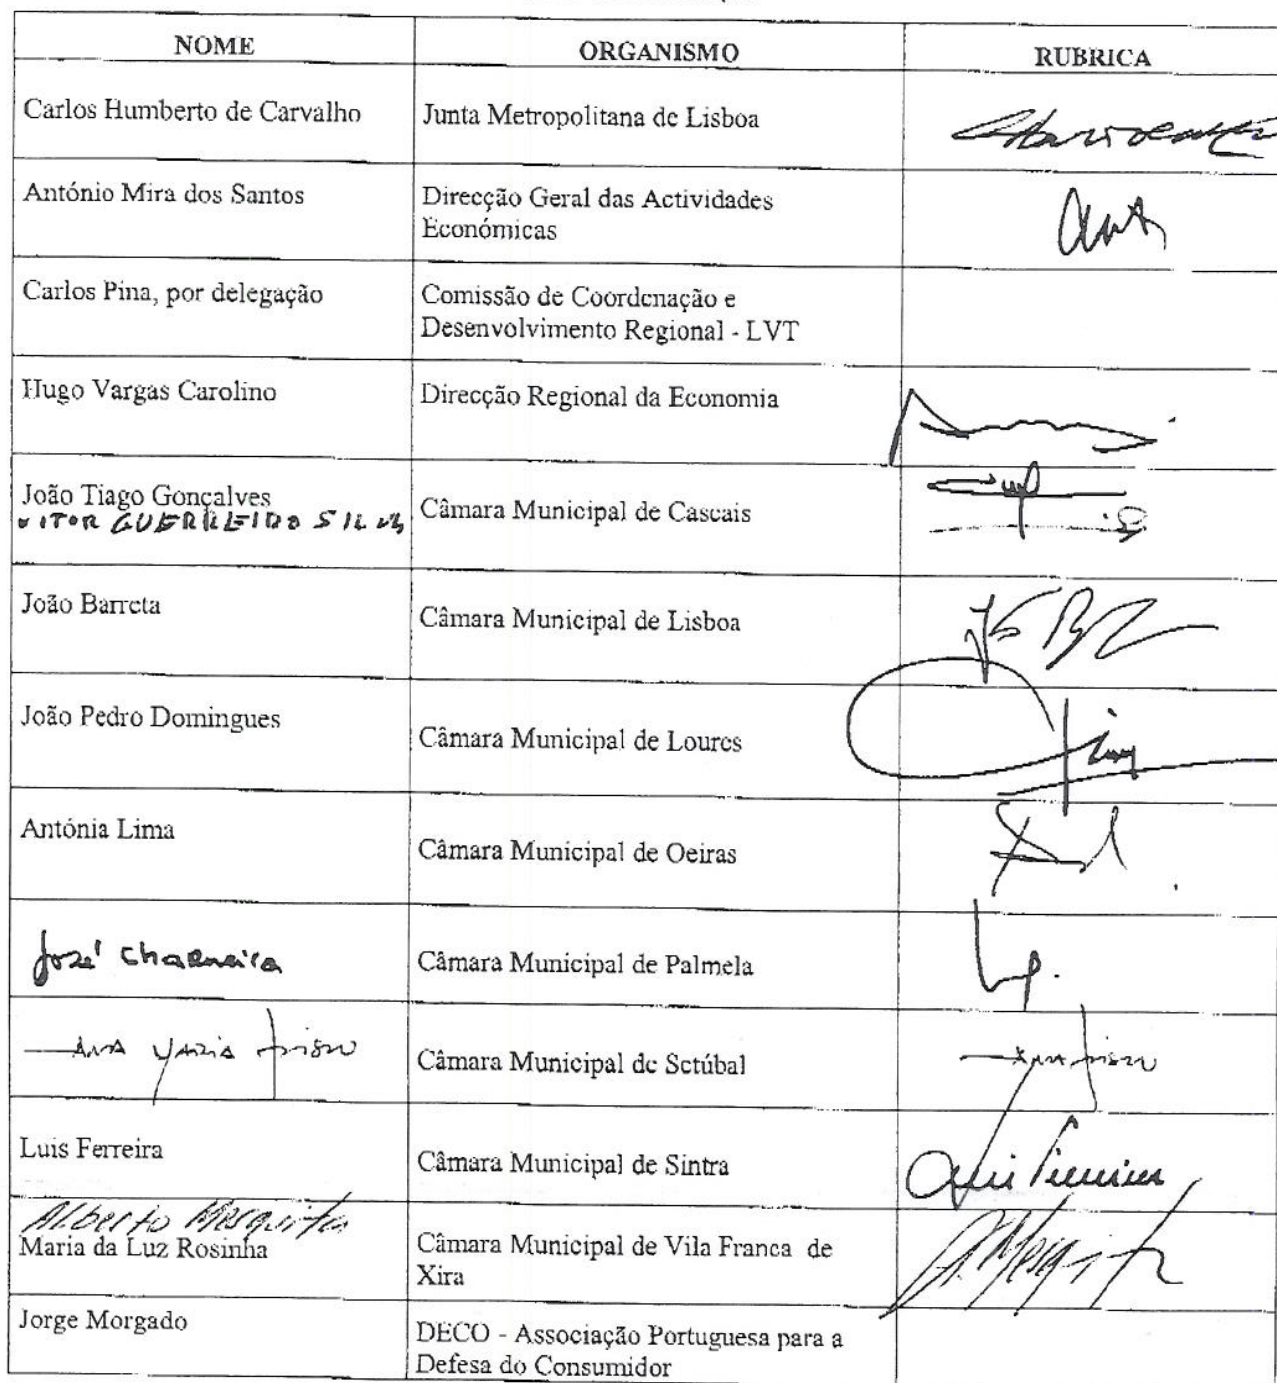 NOME ORGANISMO RUBRICA
Carlos Humberto de Carvalho Junta Metropolitana de Lisboa
António Mira dos Santos Direcção Geral das Actividades
Económicas
Carlos Pina, por delegação Comissão de Coordenação e
Desenvolvimento Regional - LVT
Hugo Vargas Carolino Direcção Regional da Economia
João Tiago Gonçalves
VITOR GUERREIRO SILVA Câmara Municipal de Cascais
João Barreta Câmara Municipal de Lisboa
João Pedro Domingues Câmara Municipal de Loures
Antónia Lima Câmara Municipal de Oeiras
José Charneira Câmara Municipal de Palmela
ANA MARIA Câmara Municipal de Setúbal
Luis Ferreira Câmara Municipal de Sintra
Alberto Mesquita
Maria da Luz Rosinha Câmara Municipal de Vila Franca de
Xira
Jorge Morgado DECO - Associação Portuguesa para a
Defesa do Consumidor